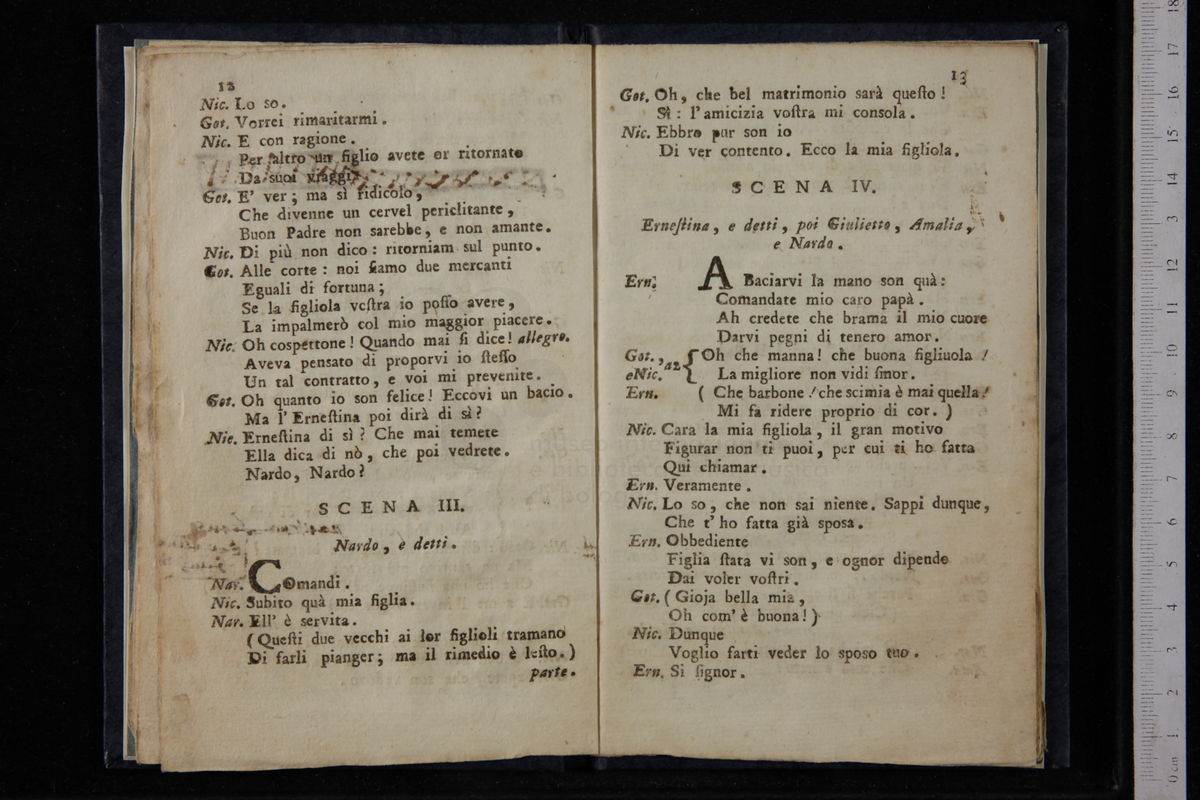 12
Nic. Lo so.
Got. Vorrei rimaritarmi.
Nic. E con ragione.
Per altro un figlio avete or ritornato
Da suoi viaggi.
Got. E' ver; ma sì ridicolo,
Che divenne un cervel periclitante,
Buon Padre non sarebbe, e non amante.
Nic. Di più non dico: ritorniam sul punto.
Got. Alle corte: noi siamo due mercanti
Eguali di fortuna;
Se la figliola vostra io posso avere,
La impalmerò col mio maggior piacere.
Nic. Oh cospettone! Quando mai si dice! allegro.
Aveva pensato di proporvi io stesso
Un tal contratto, e voi mi prevenite.
Got. Oh quanto io son felice! Eccovi un bacio.
Ma l'Ernestina poi dirà di sì?
Nic. Ernestina di sì? Che mai temete
Ella dica di nò, che poi vedrete.
Nardo, Nardo?
SCENA III.
Nardo, e detti.
Nar. Comandi.
Nic. Subito quà mia figlia.
Nar. Ell' è servita.
(Questi due vecchi ai lor figlioli tramano
Di farli pianger; ma il rimedio è lesto.)
parte.
13
Got. Oh, che bel matrimonio sarà questo!
Sì: l'amicizia vostra mi consola.
Nic. Ebbro pur son io
Di ver contento. Ecco la mia figliola.
SCENA IV.
Ernestina, e detti, poi Giulietto, Amalia,
e Nardo.
Ern. A Baciarvi la mano son quà:
Comandate mio caro papà.
Ah credete che brama il mio cuore
Darvi pegni di tenero amor.
Got., a2 { Oh che manna! che buona figliuola!
e Nic. La migliore non vidi sinor.
Ern. (Che barbone! che scimia è mai quella!
Mi fa ridere proprio di cor.)
Nic. Cara la mia figliola, il gran motivo
Figurar non ti puoi, per cui ti ho fatta
Qui chiamar.
Ern. Veramente.
Nic. Lo so, che non sai niente. Sappi dunque,
Che t'ho fatta già sposa.
Ern. Obbediente
Figlia stata vi son, e ognor dipende
Dai voler vostri.
Got. (Gioja bella mia,
Oh com' è buona!)
Nic. Dunque
Voglio farti veder lo sposo tuo.
Ern. Si signor.